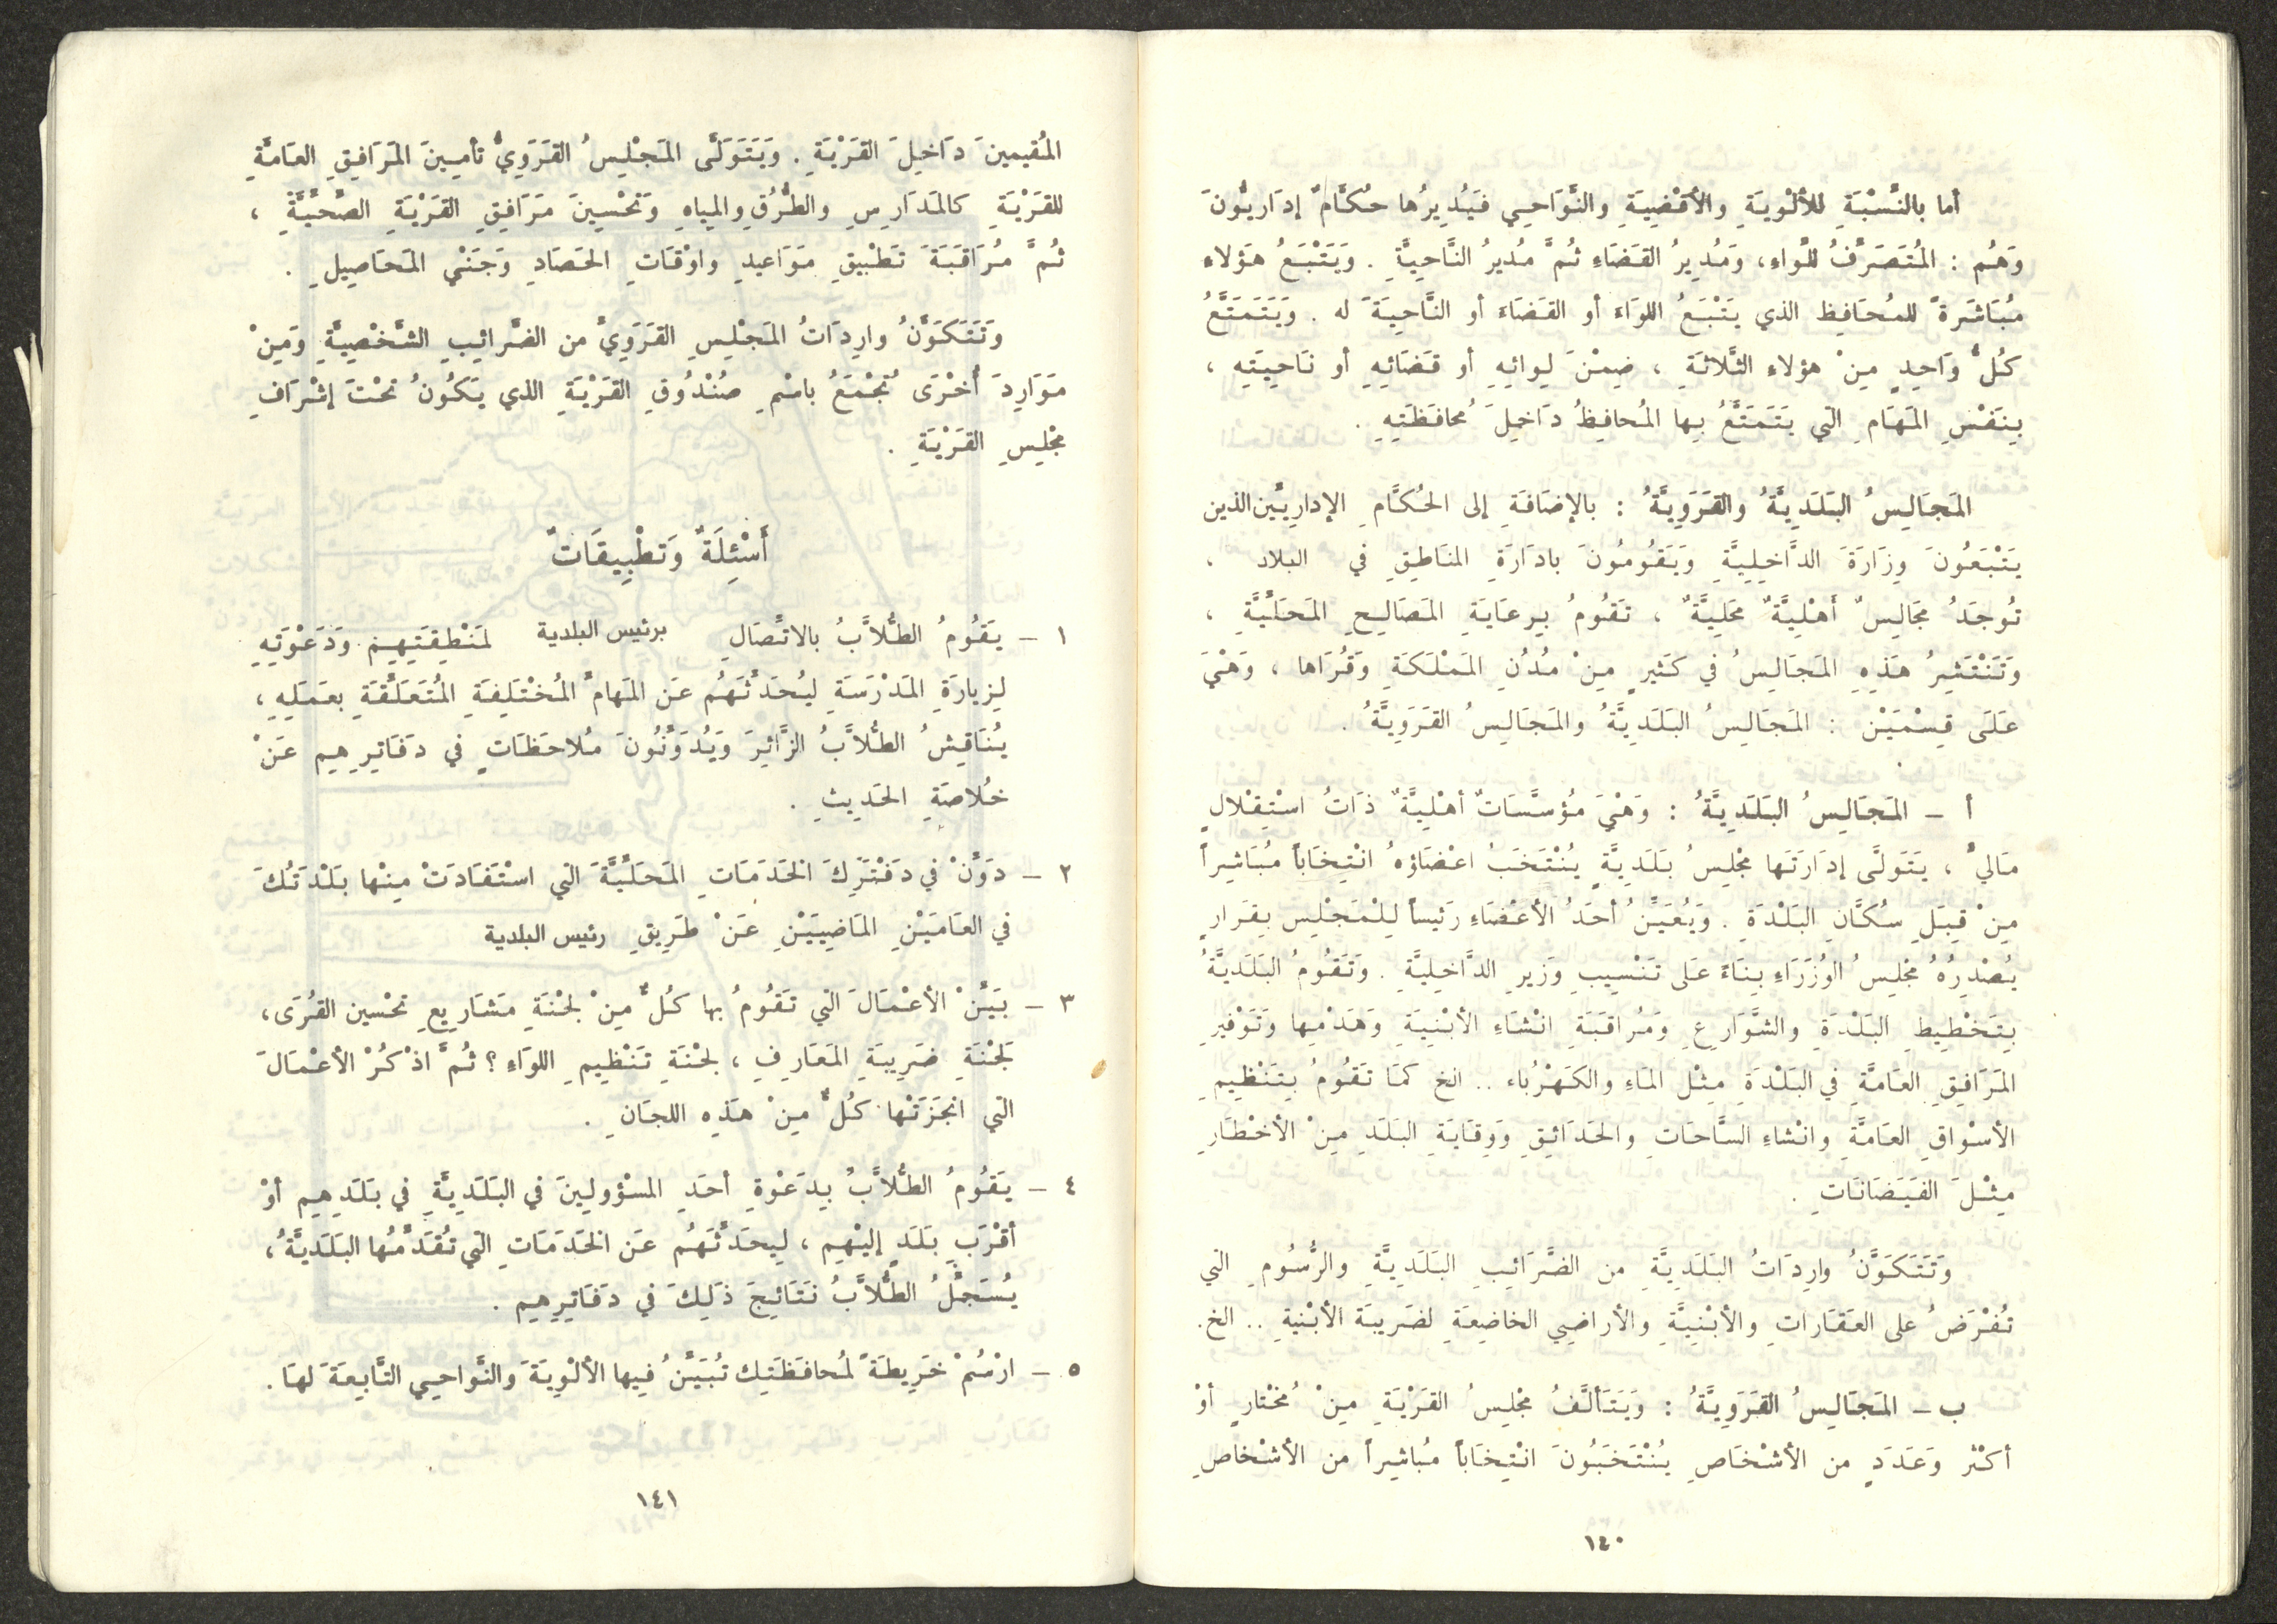 أما بالنَّسْبَةِ للألْويَةِ والأقْضِيَةِ والنَّوَاحِي فَيُدِيرُها حُكَّامٌ إدَاريُّونَ
وَهُم : المُتَصَرَّفُ للَّواءِ، وَمُدِيرُ القَضَاءِ ثُمَّ مُديرُ النَّاحِيَّةِ . وَيَتْبَعُ هَؤلاءِ
مُبَاشَرَةً للمُحَافِظ الذي يَتْبَعُ اللوَاءَ أو القَضَاءَ أو النَّاحِيَةَ له . وَيَتَمَتَّعُ
كُلُّ وَاحِدٍ مِنْ هؤلاءِ الثَّلاثَةِ ، ضِمْنَ لِوائِهِ أو قَضَائِهِ أو نَاحِيَتِهِ ،
بِنَفْسِ المَهَامِ التي يَتَمَتَّعُ بِها المُحافِظُ دَاخِلَ مُحافَظَتِهِ .
المَجَالِسُ البَلَدِيَّةُ والقَرَوِيَّةُ : بالإضَافَةِ إلى الحُكَّامِ الإدارِيَّين الذين
يَتْبَعُونَ وِزَارَةَ الدَّاخِلِيَّةِ وَيَقُومُونَ بادَارَةِ المنَاطِقِ في البلاد ،
تُوجَدُ مَجَالِسٌ أَهْلِيَّةٌ مَحَلِيَّةٌ ، تَقُومُ بِرعَايَةِ المَصَالِحِ المَحَلِّيَّةِ ،
وَتَنْتَشِرُ هَذِهِ المَجَالِسُ في كَثيرٍ مِنْ مُدُنِ المَمْلَكَةِ وَقُرَاها ، وَهْيَ
عَلَى قِسْمَيْن : المَجَالِسُ البَلَدِيَّةُ والمَجَالِسُ القَرَوِيَّةُ .
أ – المَجَالِسُ البَلَدِيَّةُ : وَهْيَ مُؤسَّسَاتٌ أهْلِيَّةٌ ذَاتُ اسْتِقْلالٍ
مَاليٍّ ، يَتَولَّى إدَارَتَها مَجْلِسُ بَلَدِيَّةٍ يُنْتَخَبُ اعْضَاؤهُ انْتِخَاباً مُبَاشِراً
مِنْ قِبَلِ سُكَّانِ البَلْدَةِ . وَيُعَيِّنُ أحَدُ الأعْضَاءِ رَئيساً لِلْمَجْلِس بِقَرَارٍ
يُصْدِرُهُ مَجْلِسُ الوُزَرَاءِ بِنَاءً عَلى تَنْسِيبِ وَزيرِ الدَّاخِلِيَّةِ . وَتَقُومُ البَلَدِيَّةُ
بِتَخْطِيطِ البَلْدَةِ والشَّوَارِعِ وَمُراقَبَةِ انْشَاءِ الأبْنِيَةِ وَهَدْمِها وَتَوْفيرِ
المَرَافِقِ العَامَّةِ في البَلْدَةِ مِثْلِ المَاءِ والكَهْرُباء .. الخ كَمَا تَقُومُ بِتَنْظِيمِ
الأسْوَاقِ العَامَّةِ وانْشاءِ السَّاحَاتِ والحَدَائِقِ وَوِقَايَةِ البَلَدِ مِنْ الأخْطَارِ
مِثْلَ الفَيَضَانَاتِ .
وَتَتَكَوَّنُ وارِدَاتُ البَلَدِيَّةِ من الضَّرَائِبِ البَلَدِيَّةِ والرُّسُومِ التي
تُفْرَضُ على العَقَاراتِ والأبْنِيَّةِ والأراضِي الخاضِعَةِ لضَريبَة الأبْنيةِ .. الخ.
ب – المَجَالِسُ القَرَوِيَّةُ : وَيَتَألَّفُ مَجْلِسُ القَرْيَةِ مِنْ مُخْتارٍ أوْ
أكْثر وَعَدَدٍ من الأشْخَاصِ يُنْتَخَبُونَ انْتِخَاباً مُباشِراً من الأشْخاصِ
١٤٠
المُقيمينَ دَاخِلَ القَرْيَةِ . وَيَتَوَلَّى المَجْلِسُ القَرَوِيُّ تأمِينَ المَرَافِقِ العَامَّةِ
للقَرْيَةِ كالمَدَارِسِ والطُّرُقِ والمِياهِ وَتَحْسِينَ مَرَافِقِ القَرْيَةِ الصِّحِّيَّةِ ،
ثُمَّ مُرَاقَبَةَ تَطْبيقِ مَوَاعيدِ واوْقَاتِ الحَصَادِ وَجَنْي المَحَاصِيلِ .
وَتَتَكَوَّنُ وارِدَاتُ المَجْلِسِ القَرَوِيِّ من الضَّرائِبِ الشَّخْصِيَّةِ وَمِنْ
مَوَارِدَ أُخْرَى تُجْمَعُ باسْمِ صُنْدُوقِ القَرْيَةِ الذي يَكُونُ تَحْتَ إشْرَافِ
مَجْلِسِ القَرْيَةِ .
أَسْئِلَةٌ وَتطْبِيقَاتٌ
١ – يَقُومُ الطُّلاَّبُ بالاتَّصَالِ برئيس البلدية لمَنْطِقَتِهِمْ وَدَعْوَتِهِ
لِزيارَةِ المَدْرَسَةِ ليُحَدِّثَهُم عَن المَهامِّ المُخْتَلِفَةِ المُتَعَلِّقَةِ بعَمَلِهِ ،
يُنَاقِشُ الطُّلاَّبُ الزَّائِرَ وَيُدَوِّنُونَ مُلاحَظَاتٍ في دَفَاتِرِهِم عَنْ
خُلاصَةِ الحَدِيثِ .
٢ – دَوَّنْ في دَفْتَرِكَ الخَدَمَاتِ المَحَلِّيَّةَ التي اسْتَفَادَتْ مِنْها بَلْدَتُكَ
في العَامَيْنِ المَاضِيَيْنِ عَنْ طَرِيقِ رئيس البلدية
٣ – بَيَّنْ الأعْمَالَ التي تَقُومُ بها كُلٌّ مِنْ لَجْنَةِ مَشَارِيعِ تَحْسين القُرَى،
لَجْنَةِ ضَرِيبَةِ المَعَارِفِ ، لَجْنَةِ تَنْظِيمِ اللوَاءِ ؟ ثُمَّ اذْكُرْ الأعْمَالَ
التي انجَزَتْها كُلٌّ مِنْ هَذِه اللجَانِ .
٤ – يَقُومُ الطُّلاَّبُ بِدَعْوةِ أحَدِ المسْؤولِينَ في البَلَدِيَّةِ في بَلَدِهِم أوْ
أقْرَبِ بَلَدٍ إليْهِم ، لِيحَدِّثَهُم عَن الخَدَمَاتِ التي تُقَدِّمُها البَلَدِيَّةُ،
يُسَجِّلُ الطُّلاَّبُ نَتَائِجَ ذَلِكَ في دَفَاتِرِهِم .
٥ – ارْسُمْ خَرِيطَةً لمُحافَظَتِك تُبَيِّنُ فِيها الألْوِيَةَ وَالنَّواحِي التَّابِعَةَ لهَا.
١٤١